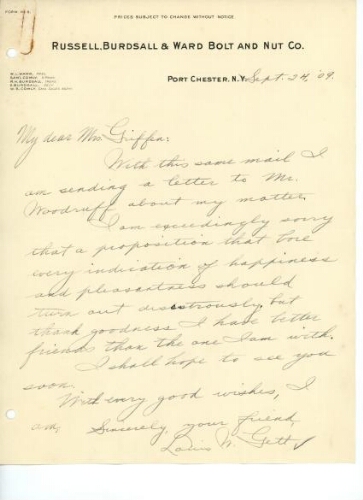 PRICES SUBJECT TO CHANGE WITHOUT NOTICE.
RUSSELL, BURDSALL & WARD BOLT AND NUT CO.
PORT CHESTER, N.Y. Sept. 24, '09.
My dear Mrs Griffen:
With this same mail I
am sending a letter to Mr.
Woodruff about my matter.
I am exceedingly sorry
that a proposition that bore
every indication of happiness
and pleasantness should
turn out disastrously, but
thank goodness I have better
friends than the one I am with.
I shall hope to see you
soon.
With every good wishes, I
am, Sincerely, your friend,
Louis W.